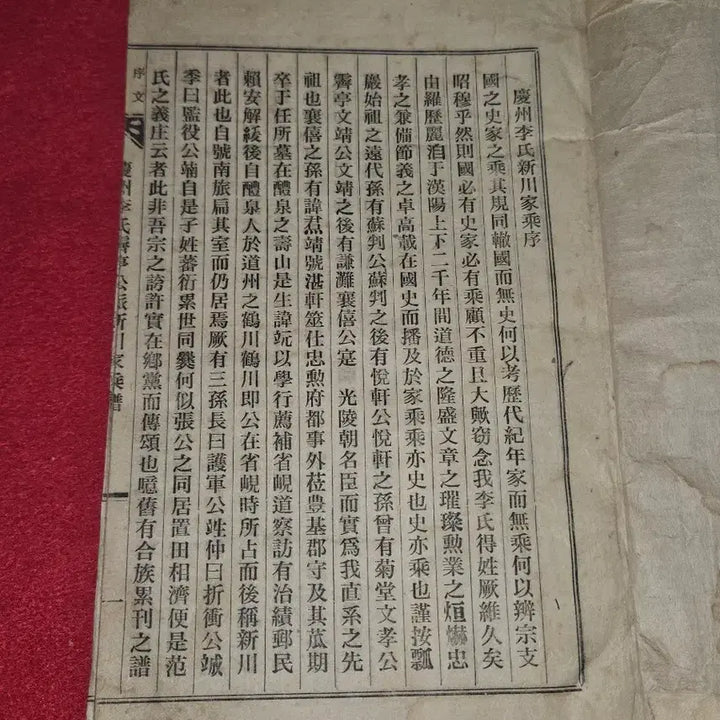 慶州李氏新川家乘序
國之史家之乘其規同轍國而無史何以考歷代紀年家而無乘何以辨宗支
昭穆乎然則國必有史家必有乘顧不重且大歟窃念我李氏得姓厥維久矣
由羅歷麗洎于漢陽上下二千年間道德之隆盛文章之璀璨勲業之烜爀忠
孝之兼備節義之卓高載在國史而播及於家乘乘亦史也史亦乘也謹按瓢
巖始祖之遠代孫有蘇判公蘇判之後有悅軒公悅軒之孫曾有菊堂文孝公
霽亭文靖公文靖之後有謙灘襄僖公寔 光陵朝名臣而實爲我直系之先
祖也襄僖之孫有諱 靖號湛軒筮仕忠勲府都事外莅豊基郡守及其苽期
卒于任所墓在醴泉之壽山是生諱 以學行薦補省峴道察訪有治績郵民
賴安解綬後自醴泉人於道州之鶴川鶴川即公在省峴時所占而後稱新川
者此也自號南旅扁其室而仍居焉厥有三孫長曰護軍公 仲曰折衝公
季曰監役公 自是子姓蕃衍累世同爨何似張公之同居置田相濟便是范
氏之義庄云者此非吾宗之誇許實在鄕黨而傳頌也噫舊有合族累刊之譜
序文
慶州李氏霽亭公派新川家乘譜
一